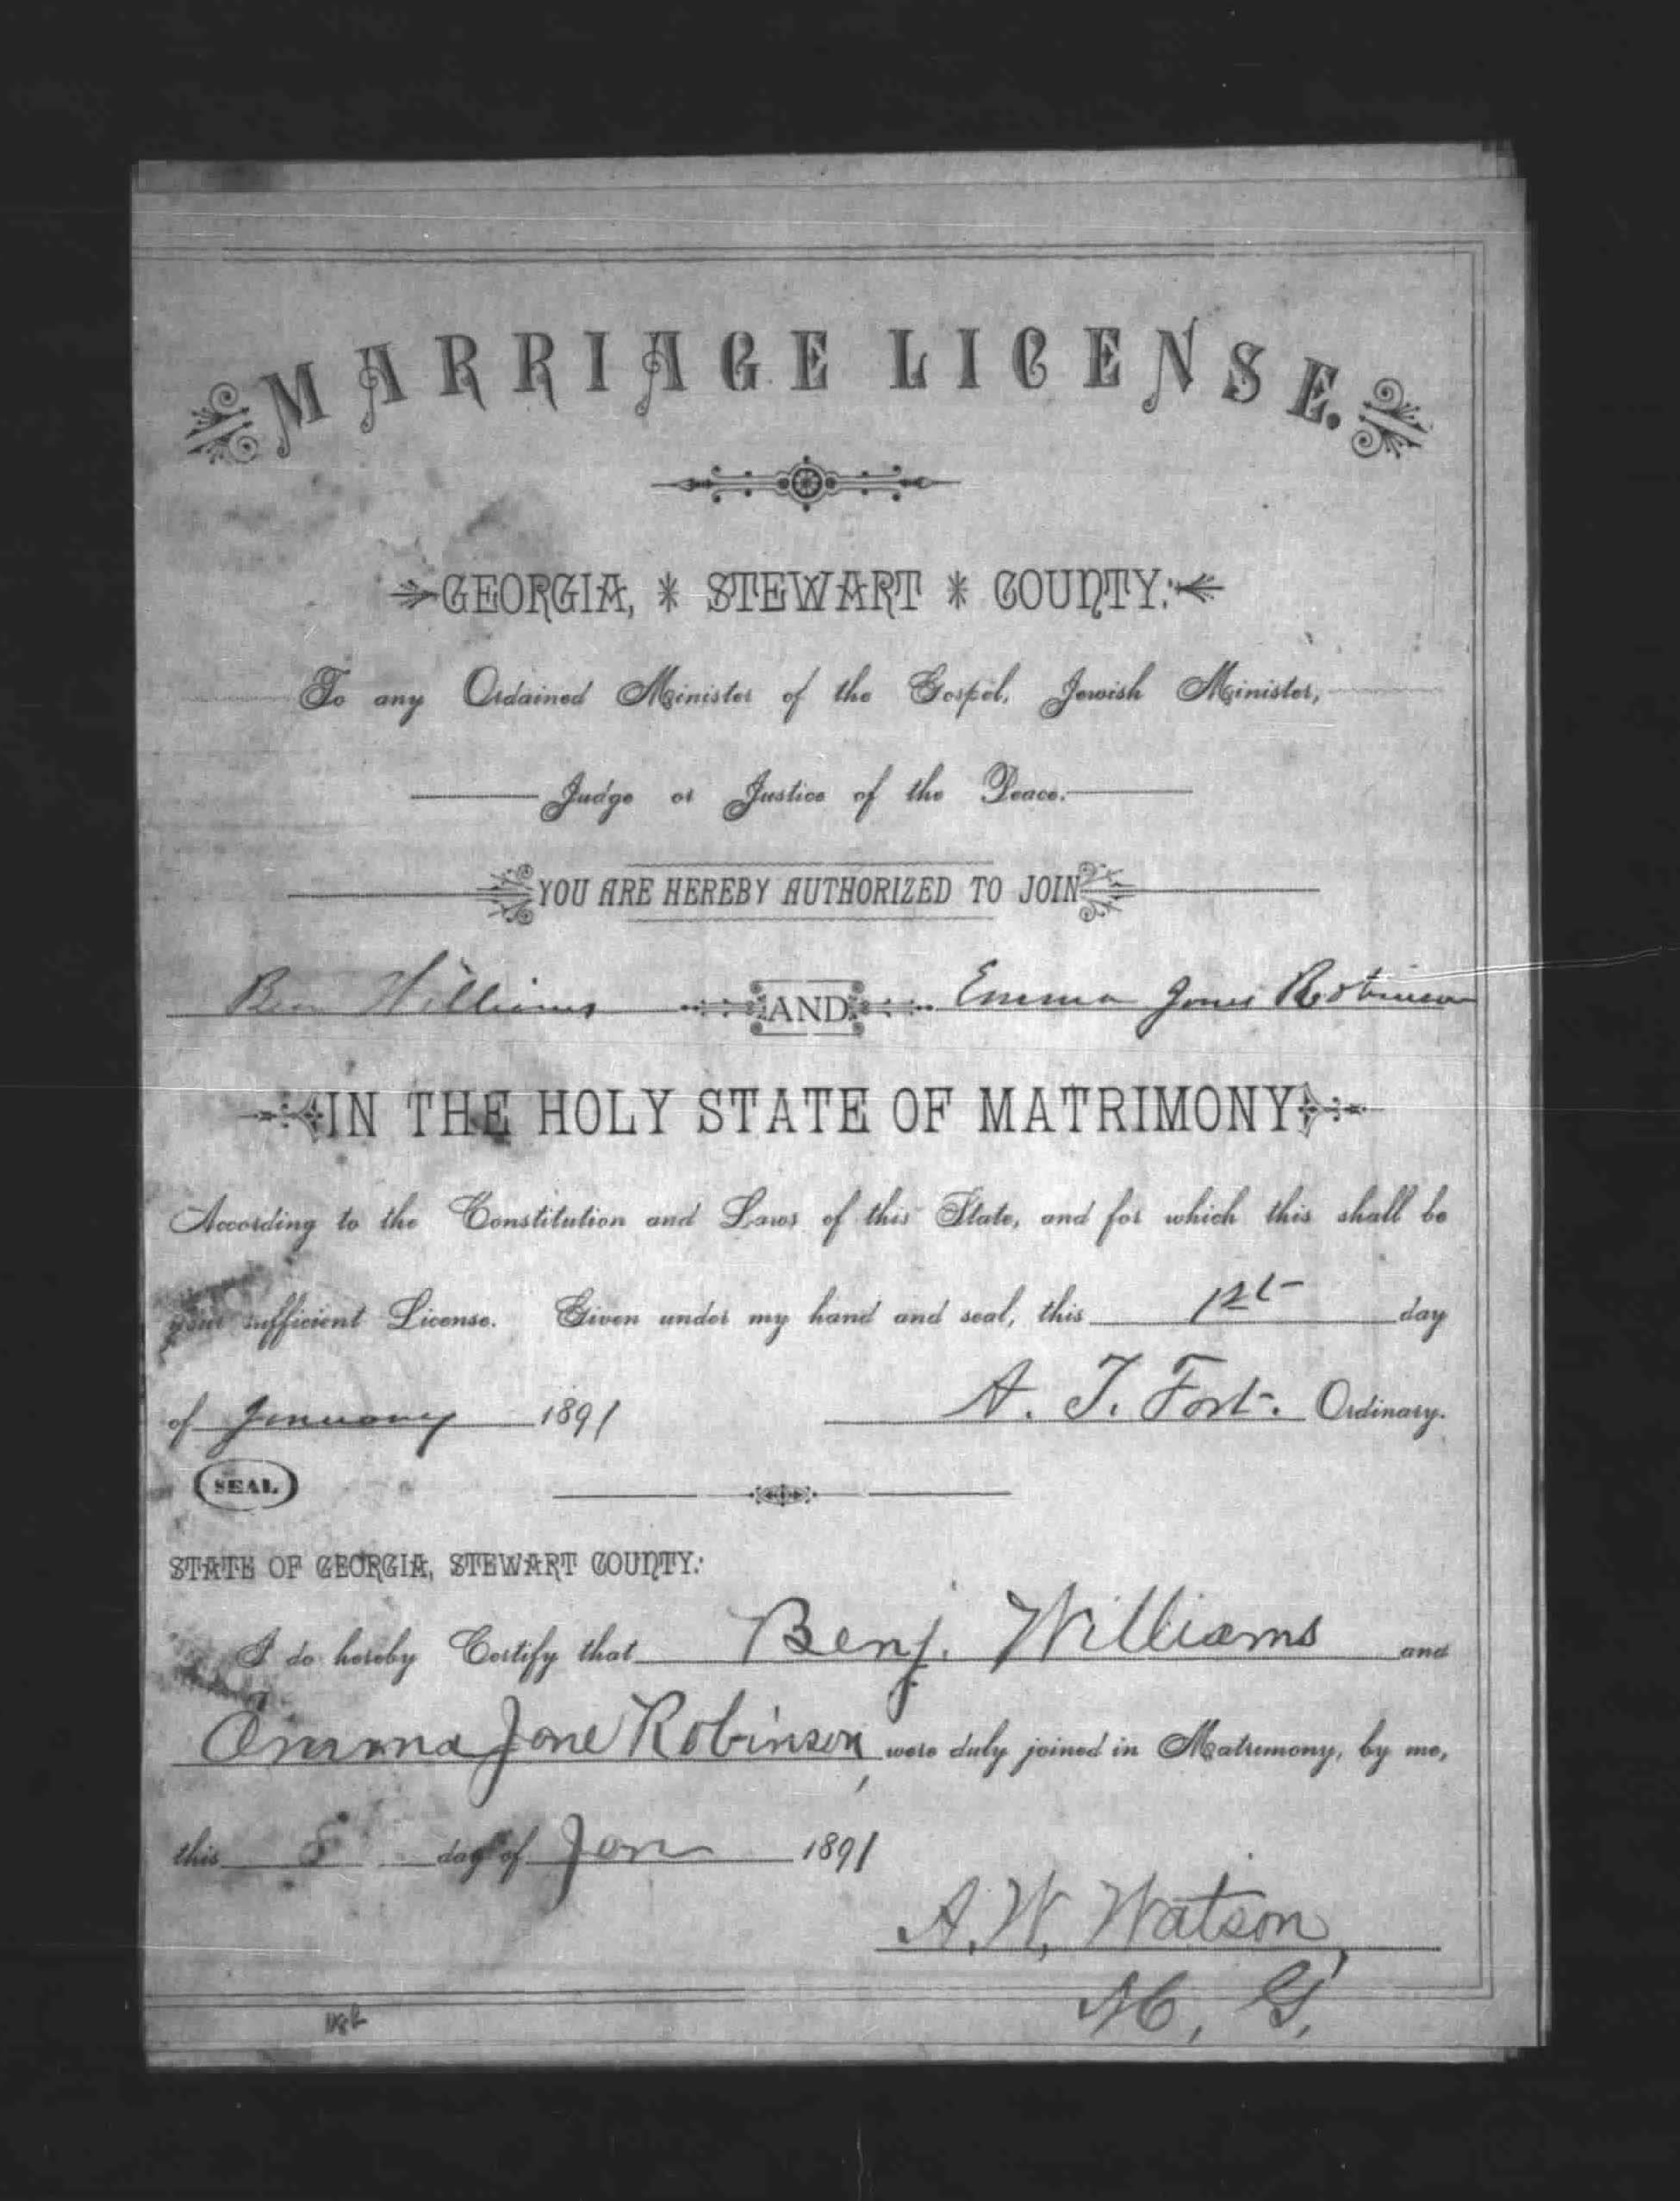 MARRIAGE LICENSE.
GEORGIA, * STEWART * COUNTY:
To any Ordained Minister of the Gospel, Jewish Minister,
Judge or Justice of the Peace.
YOU ARE HEREBY AUTHORIZED TO JOIN
Ben Williams AND Emma Jones Robinson
IN THE HOLY STATE OF MATRIMONY
According to the Constitution and Laws of this State, and for which this shall be
your sufficient License. Given under my hand and seal, this 1st day
of January 1891 A. T. Fort. Ordinary.
SEAL
STATE OF GEORGIA, STEWART COUNTY:
I do hereby Certify that Benj. Williams and
Emma Jane Robinson, were duly joined in Matrimony, by me,
this 8 day of Jan 1891
A. W. Watson,
M. G.